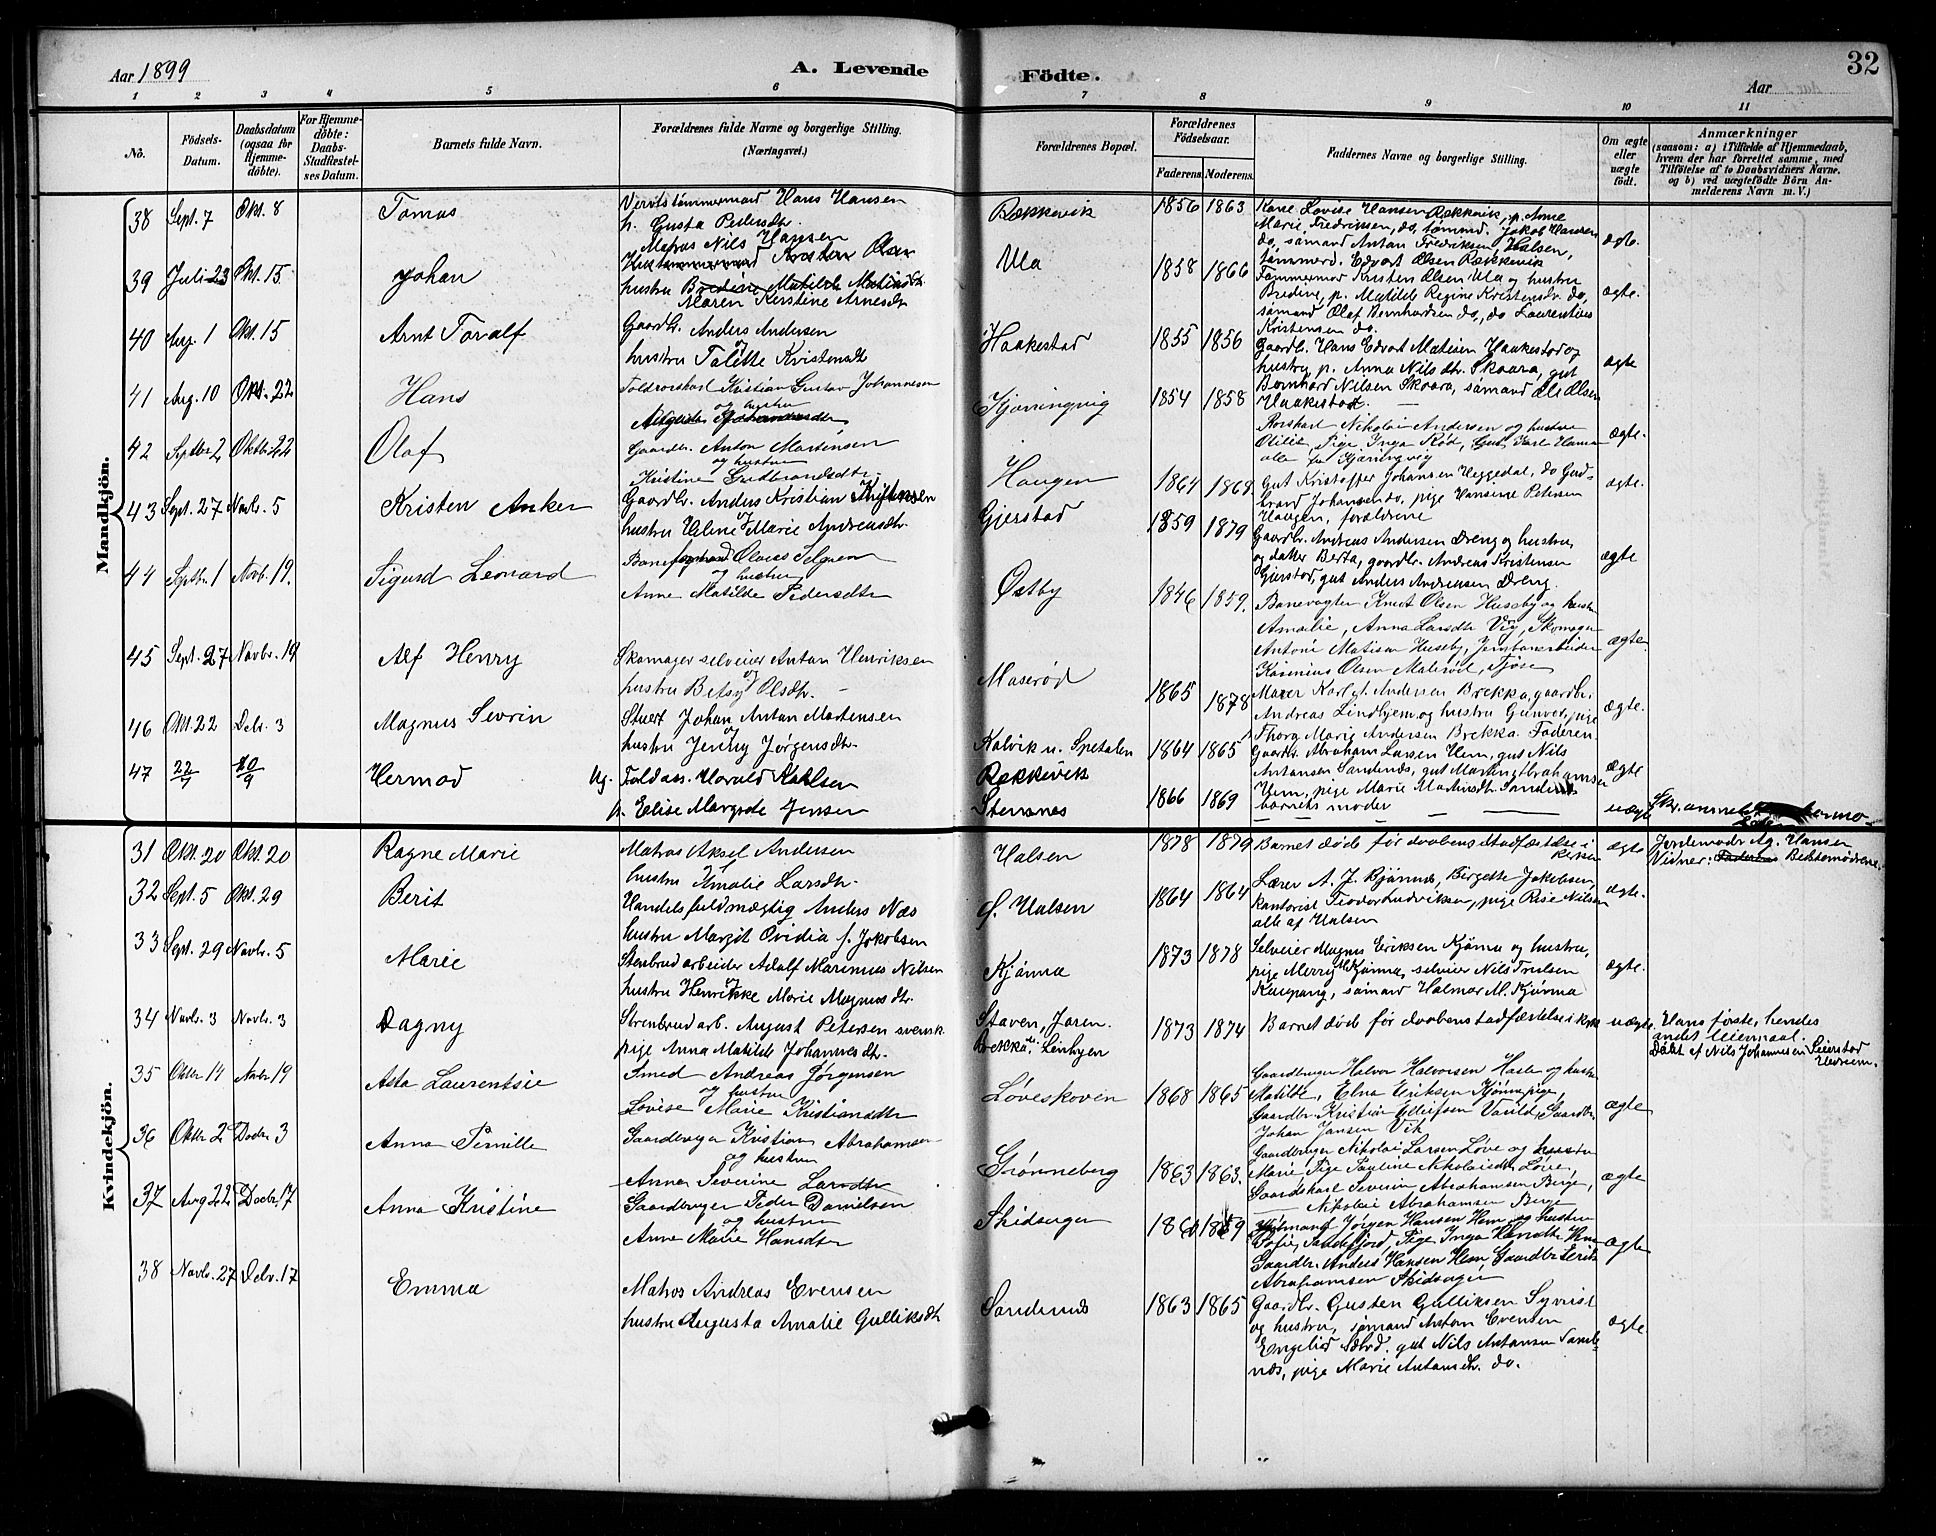 Aar 1899
A. Levende
Födte.
Aar
32
1 2 3 4 5 6 7 8 9 10 11
No.
Födsels-
Datum.
Daabsdatum
(ogsaa for
Hjemme-
döbte).
For Hjemme-
döbte:
Daabs-
Stadfæstel-
ses Datum.
Barnets fulde Navn.
Forældrenes fulde Navne og borgerlige Stilling.
(Næringsvei.)
Forældrenes Bopæl.
Forældrenes
Födselsaar.
Faderens. Moderens.
Faddernes Navne og borgerlige Stilling.
Om ægte
eller
uægte
født.
Anmærkninger
(saasom: a) i Tilfælde af Hjemmedaab,
hvem der har forrettet samme, med
Tilföielse af to Daabsvidners Navne.
og b) ved uægtefödte Börn An-
melderens Navn m. V.)
Mandkjön.
38 Sept. 7 Okt. 8 Tomas
Hans Hansen
h. Gusta Pedersdtr.
Rekkevik 1856 1863
Karl Lovise Hansen Rekkevik, p. Anne
Marie Fredriksen, do, tømmd. Jakob Hansen
do, sømand Antan Fredriksen, Halsen,
tømmerd. Edvart Olsen Rekkevik
ægte.
39 Juli 23 Okt. 15 Johan
Matros Nils Hansen
hustru
Maren Kirstine Arnesdtr.
Ula 1858 1866
Tømmermd Kristen Olsen Ula og hustru
Bredine, p. Matilde Regine Kristensdr. do,
sømand Olaf Bernhardsen do, do Laurentius
Kristensen do.
ægte.
40 Aug. 1 Okt. 15 Arnt Toralf
Gaardbr. Anders Andersen
og
hustru Talette Kristensdtr
Haakestad 1855 1856
Gaardbr. Hans Edvart Matisen Haakestad og
hustru, p. Anna Nilsdtr. Skaara, gut
Bernhard Nilsen Skaara, sømand Ole Olsen
Haakestad.
ægte
41 Aug. 10 Okt. 22 Hans
Kristian Gustav Johannesen
og hustru
Kjøringvig 1854 1858
Rorskarl Nikolai Andersen og hustru
Olilie, Pige Inga Rød, Gut Karl Hansen
alle fra Kjøringvig
ægte.
42 Septbr. 2 Oktbr. 22 Olaf
Gaardbr. Anton Martensen
og hustru
Kristine Guldbrandsdtr.
Haugen 1864 1868
Gut Kristoffer Johansen Heggedal, do Guld-
brand Johansen do, pige Hansine Petersen
Haugen, forældrene
ægte.
43 Sept. 27 Novbr. 5 Kristen Anker
Gaardbr. Anders Kristian Kristensen
og
hustru Helene Marie Andreasdtr.
Gjerstad 1859 1879
Gaardbr. Andreas Andersen Dreng og hustru,
og datter Berta, gaardbr. Andreas Kristensen
Gjerstad, gut Anders Andreasen Dreng.
ægte
44 Septbr. 1 Novb. 19. Sigurd Leonard
og hustru
Anne Matilde Pedersdtr
Østby 1846 1859.
Banevogter Knut Olsen Huseby og hustru
Amalie, Anna Larsdtr Vig, Skomager
Antoni Matisen Huseby, Jernbanearbeider
Kasenius Olsen Malerød, Tjøse
ægte
45 Sept. 27 Novbr. 19 Alf Henry
Skomager selveier Antan Henriksen
og
hustru Betsy Olsdtr.
Maserød 1865 1878
Murer Karl Andersen Brekka, gaardbr.
Andreas Lindhjem og hustru Gunver, pige
Thora Marie Andersen Brekka. Faderen.
ægte.
46 Okt. 22 Debr. 3 Magnus Sevrin
Stuert Johan Antan Martensen
og
hustru Jenny Jørgensdtr.
Kalvik u. Spetalen 1864 1865
Gaardbr. Abraham Larsen Hem, gut Nils
Antansen Sandnæs, gut Martin Abrahamsen
Hem, pige Marie Martinsdtr. Sandnæs
ægte
47 22/7 10/9 Hermod
Ug. Toldass. Harald Karlsen
p. Elise Margrete Jensen
Rekkevik
Stensnes
1866 1869
barnets moder
uægte
Kvindekjön.
31 Okt. 20 Okt. 20 Ragne Marie
Matros Aksel Andersen
hustru Amalie Larsdtr.
Halsen 1878 1879
Barnet døde før daabens stadfæstelse i
kirken
ægte
Jordemoder Ag. Hansen
Vidner: Bedstemødrene.
32 Sept. 5 Okt. 29 Berit
Handelsfuldmægtig Anders Næs
hustru Margit Ovidia f. Jakobsen
Ø. Halsen 1864 1864
Lærer A. J. Bjønnes, Birgette Jakobsen,
kontorist Teodor Ludviksen, pige Rise Nilsen
alle af Halsen
ægte.
33 Sept. 29 Novbr. 5 Marie
Stenbrudarbeider Adolf Marinius Nilsen
og
hustru Henrikke Marie Magnusdtr.
Kjønna 1873 1878
Selveier Magnus Eriksen Kjønna og hustru,
pige Merry M. Kjønna, selveier Nils Trulsen
Kaupang, sømand Halmar M. Kjønna
ægte.
34 Novbr. 3 Novbr. 3 Dagny
Stenbrudarb. August Petersen svensk.
pige Anna Matilde Johannesdtr.
Staven, Jaren.
Brekka u. Linhjen
1873 1874
Barnet døde før daabens stadfæstelse i kirk
uægte.
Hans første, hendes
andet leiermaal.
Døbt af Nils Johannesen Leierstad
35 Oktbr. 14 Novbr. 19 Asta Laurentsie
Smed Andreas Jørgensen
og hustru
Lovise Marie Kristiansdtr
Løveskoven 1868 1865
Gaardbruger Halvor Halvorsen Hasle og hustru
Matilde, Elna Eriksen Kjønna pige,
Gaardbr. Kristian Ellefsen Varild, Gaardbr.
Johan Jansen Vik
ægte
36 Oktbr. 2 Decbr. 3 Anna Pernille
Gaardbruger Kristian Abrahamsen
og hustru
Anna Severine Larsdtr
Grønneberg 1863 1863.
Gaardbruger Nikolai Larsen Løve og hustru
Marie, Pige Pauline Nikolaisdtr Løve,
Gaardskarl Severin Abrahamsen Berge,
Nikolai Abrahamsen Berge
ægte
37 Aug 22 Decbr. 17 Anna Kristine
Gaardbruger Peder Danielsen
og hustru
Anne Marie Hansdtr
Skidsager
Jørgen Hansen Hem og hustru
Sofie, Sandefjord, Pige Inga Hansdtr Hem
Gaardbr. Anders Hansen Hem, Gaardbr. Eirik
Abrahamsen Skidsager
ægte
38 Novbr. 27 Debr. 17 Emma
Matros Andreas Evensen
hustru Augusta Amalie Gulliksdtr
Sandnæs 1863 1865
Gaardbr. Gusten Gulliksen Syvrist
og hustru, sømand Antan Evensen
gut Nils Antansen Sand-
næs, pige Marie Antansdtr. do.
ægte.